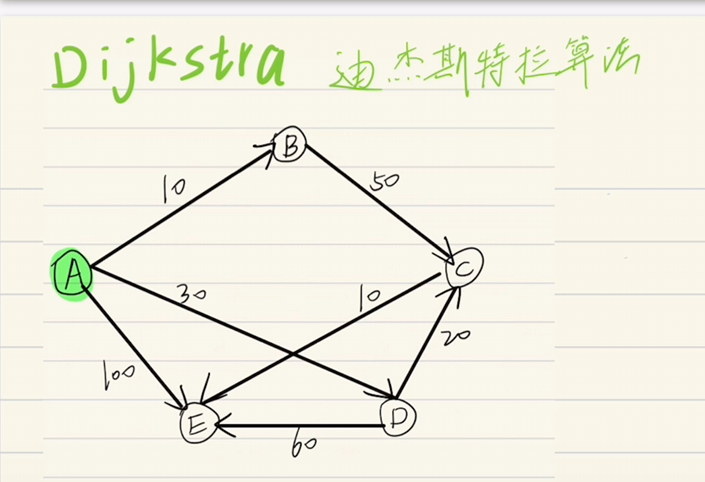 Dijkstra 迪杰斯特拉算法
B
10
50
A
C
30
10
20
100
E
D
60